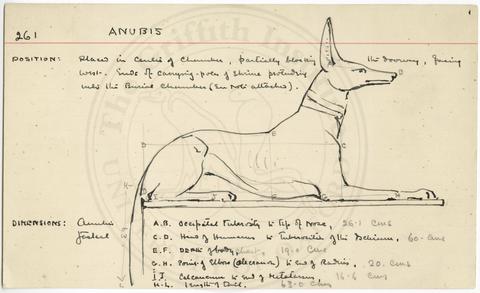 261
ANUBIS
POSITION: Placed in Centre of Chamber, partially blocking the doorway, facing
West. Ends of carrying-poles of shrine protruding
into the Burial Chamber (See Note attached).
DIMENSIONS: Anubis
Jackal
A.B. Occipital Tuberosity to tip of Nose, 26.1 Cms
C.D. Head of Humerus to Tuberosities of the Ischium, 60. Cms
E.F. Depth of body, chest, 19.0 Cms
G.H. Point of Elbow (Olecranon) to end of Radius, 20. Cms
I.J. Calcaneum to end of Metatarsus, 16.6 Cms
K-L. Length of Tail. 63.0 Cms